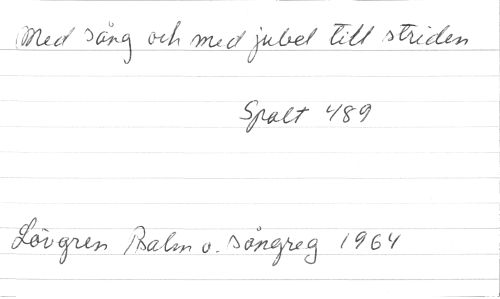 Med sång och med jubel till striden
Spalt 489
Lövgren Psalm o. sångreg 1964